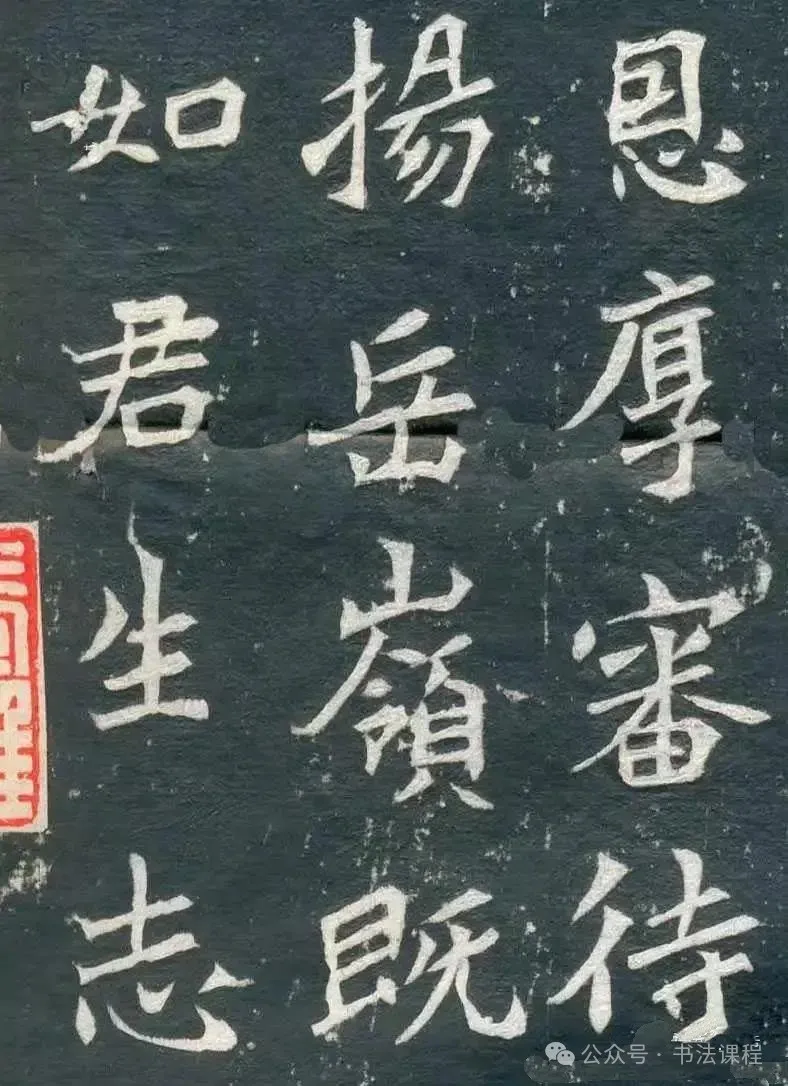 恩厚審待
揚岳嶺既
如君生志
公众号 · 书法课程